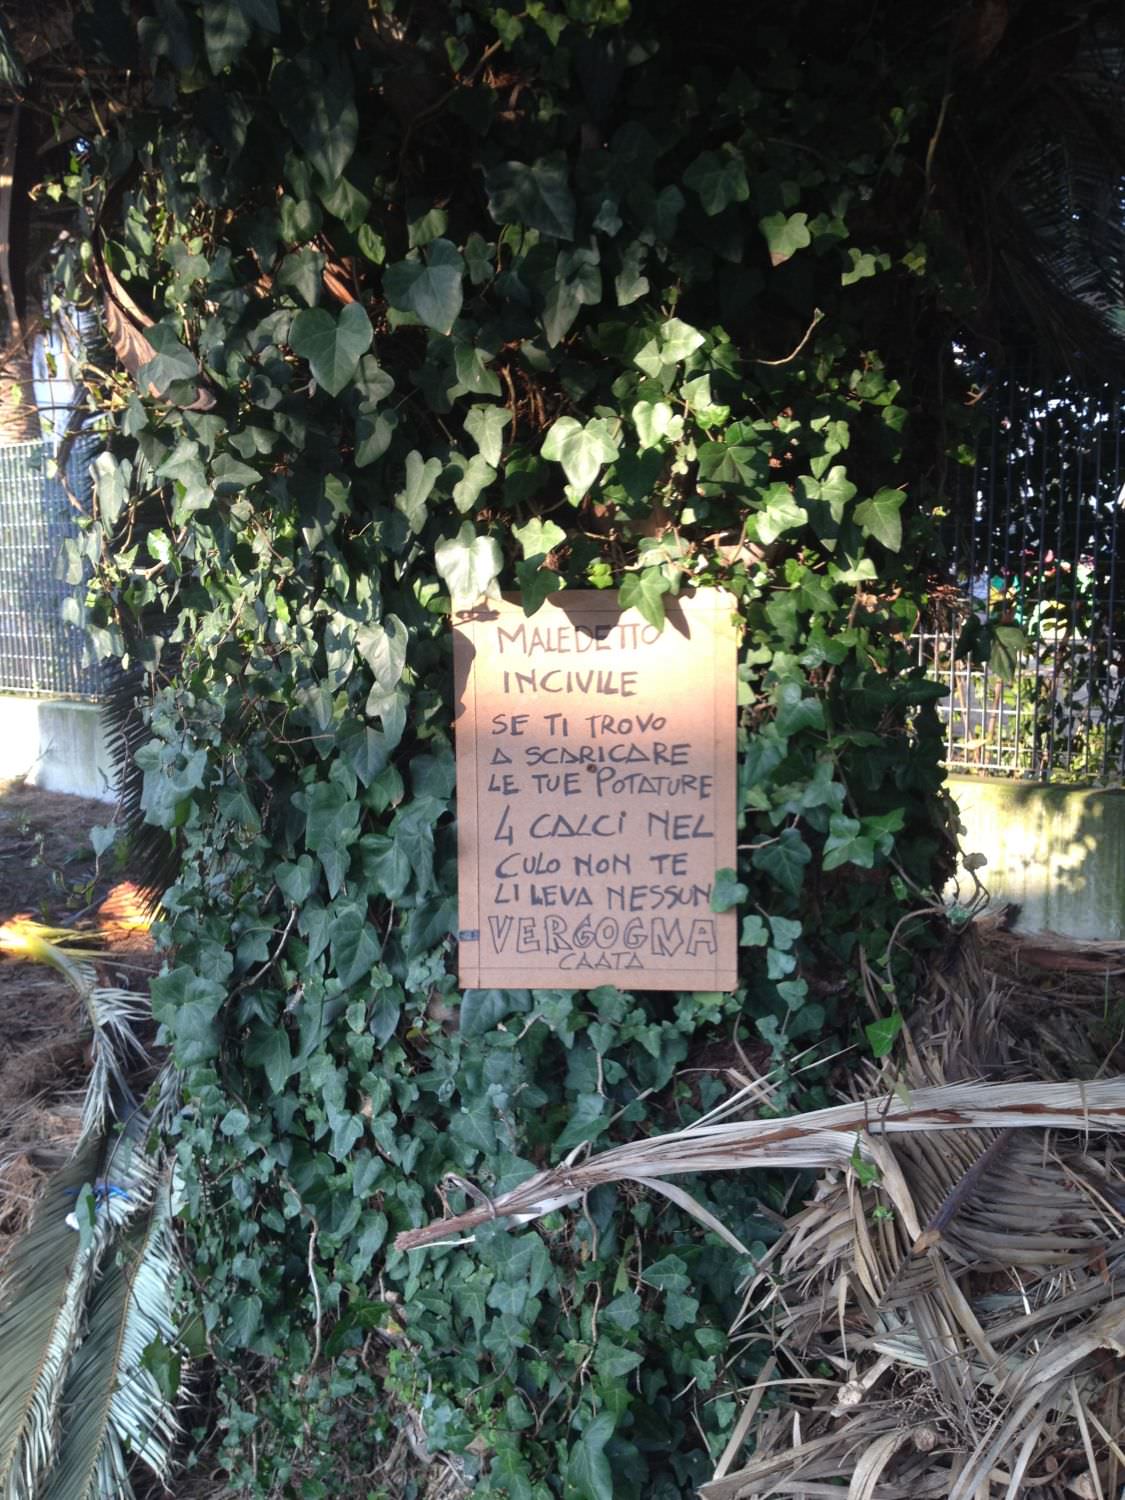 MALEDETTO
INCIVILE
SE TI TROVO
A SCARICARE
LE TUE POTATURE
4 CALCI NEL
CULO NON TE
LI LEVA NESSUN
VERGOGNA
CAATA